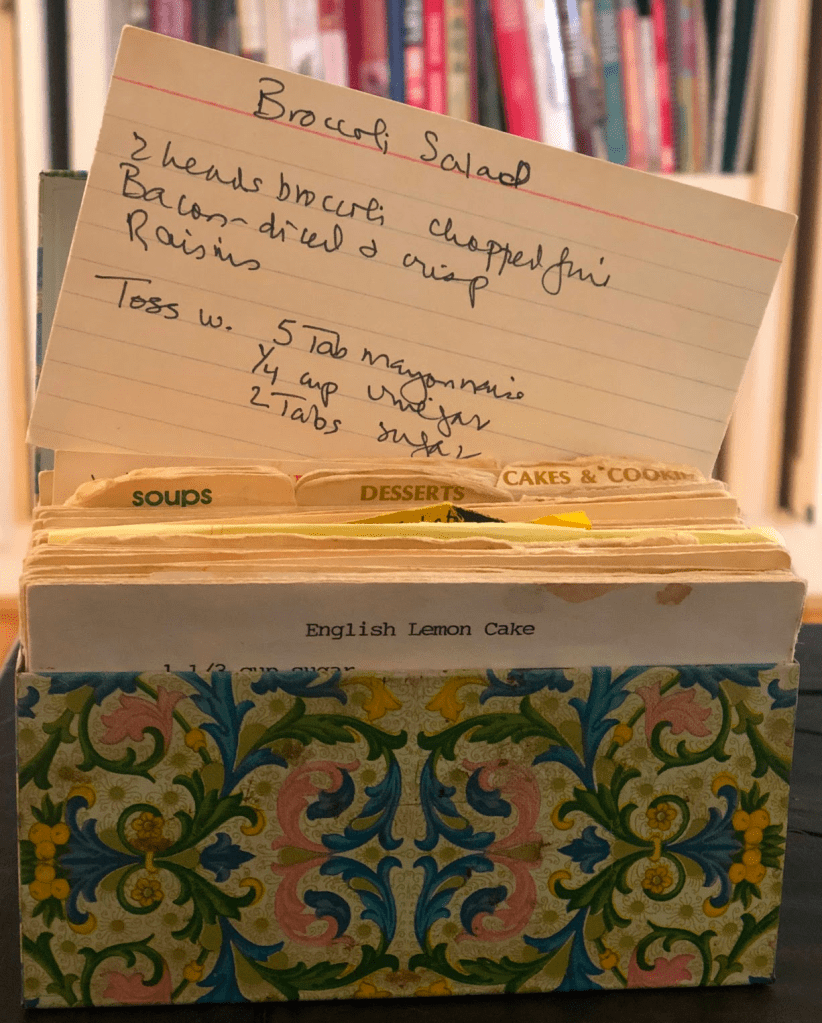 Broccoli Salad
2 heads broccoli chopped fine
Bacon-diced & crisp
Raisins
Toss w. 5 Tab mayonnaise
1/4 cup vinegar
2 Tabs sugar
SOUPS
DESSERTS
CAKES & COOKI
English Lemon Cake
1 1/3 cup sugar